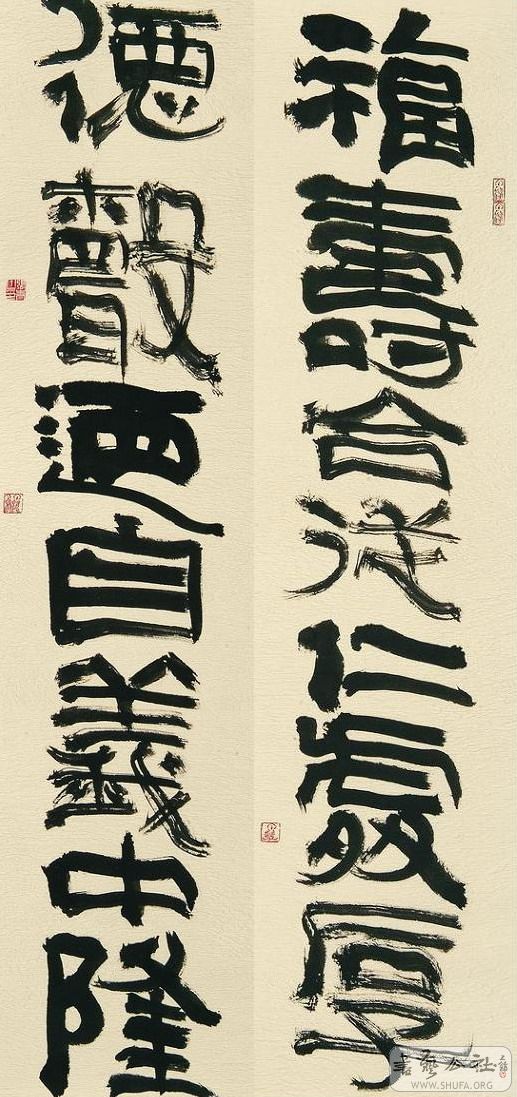 福壽合從仁處厚
德聲迺自義中隆
書藝公社
WWW.SHUFA.ORG